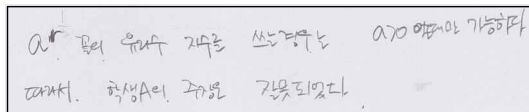 a^r 꼴의 유리수 지수를 쓰는 경우는 a>0 일때만 가능하다
따라서. 학생A의 주장은 잘못되었다.